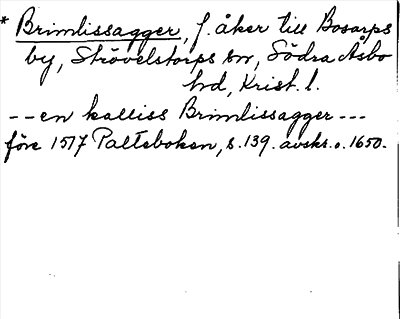 * Brimlissagger, f. åker till Bosarps
by, Strövelstorps sn, Södra Åsbo
hd, Krist. l.
-- en kalliss Brimlissagger ---
före 1517 Palteboken, s. 139. avskr. o. 1650.